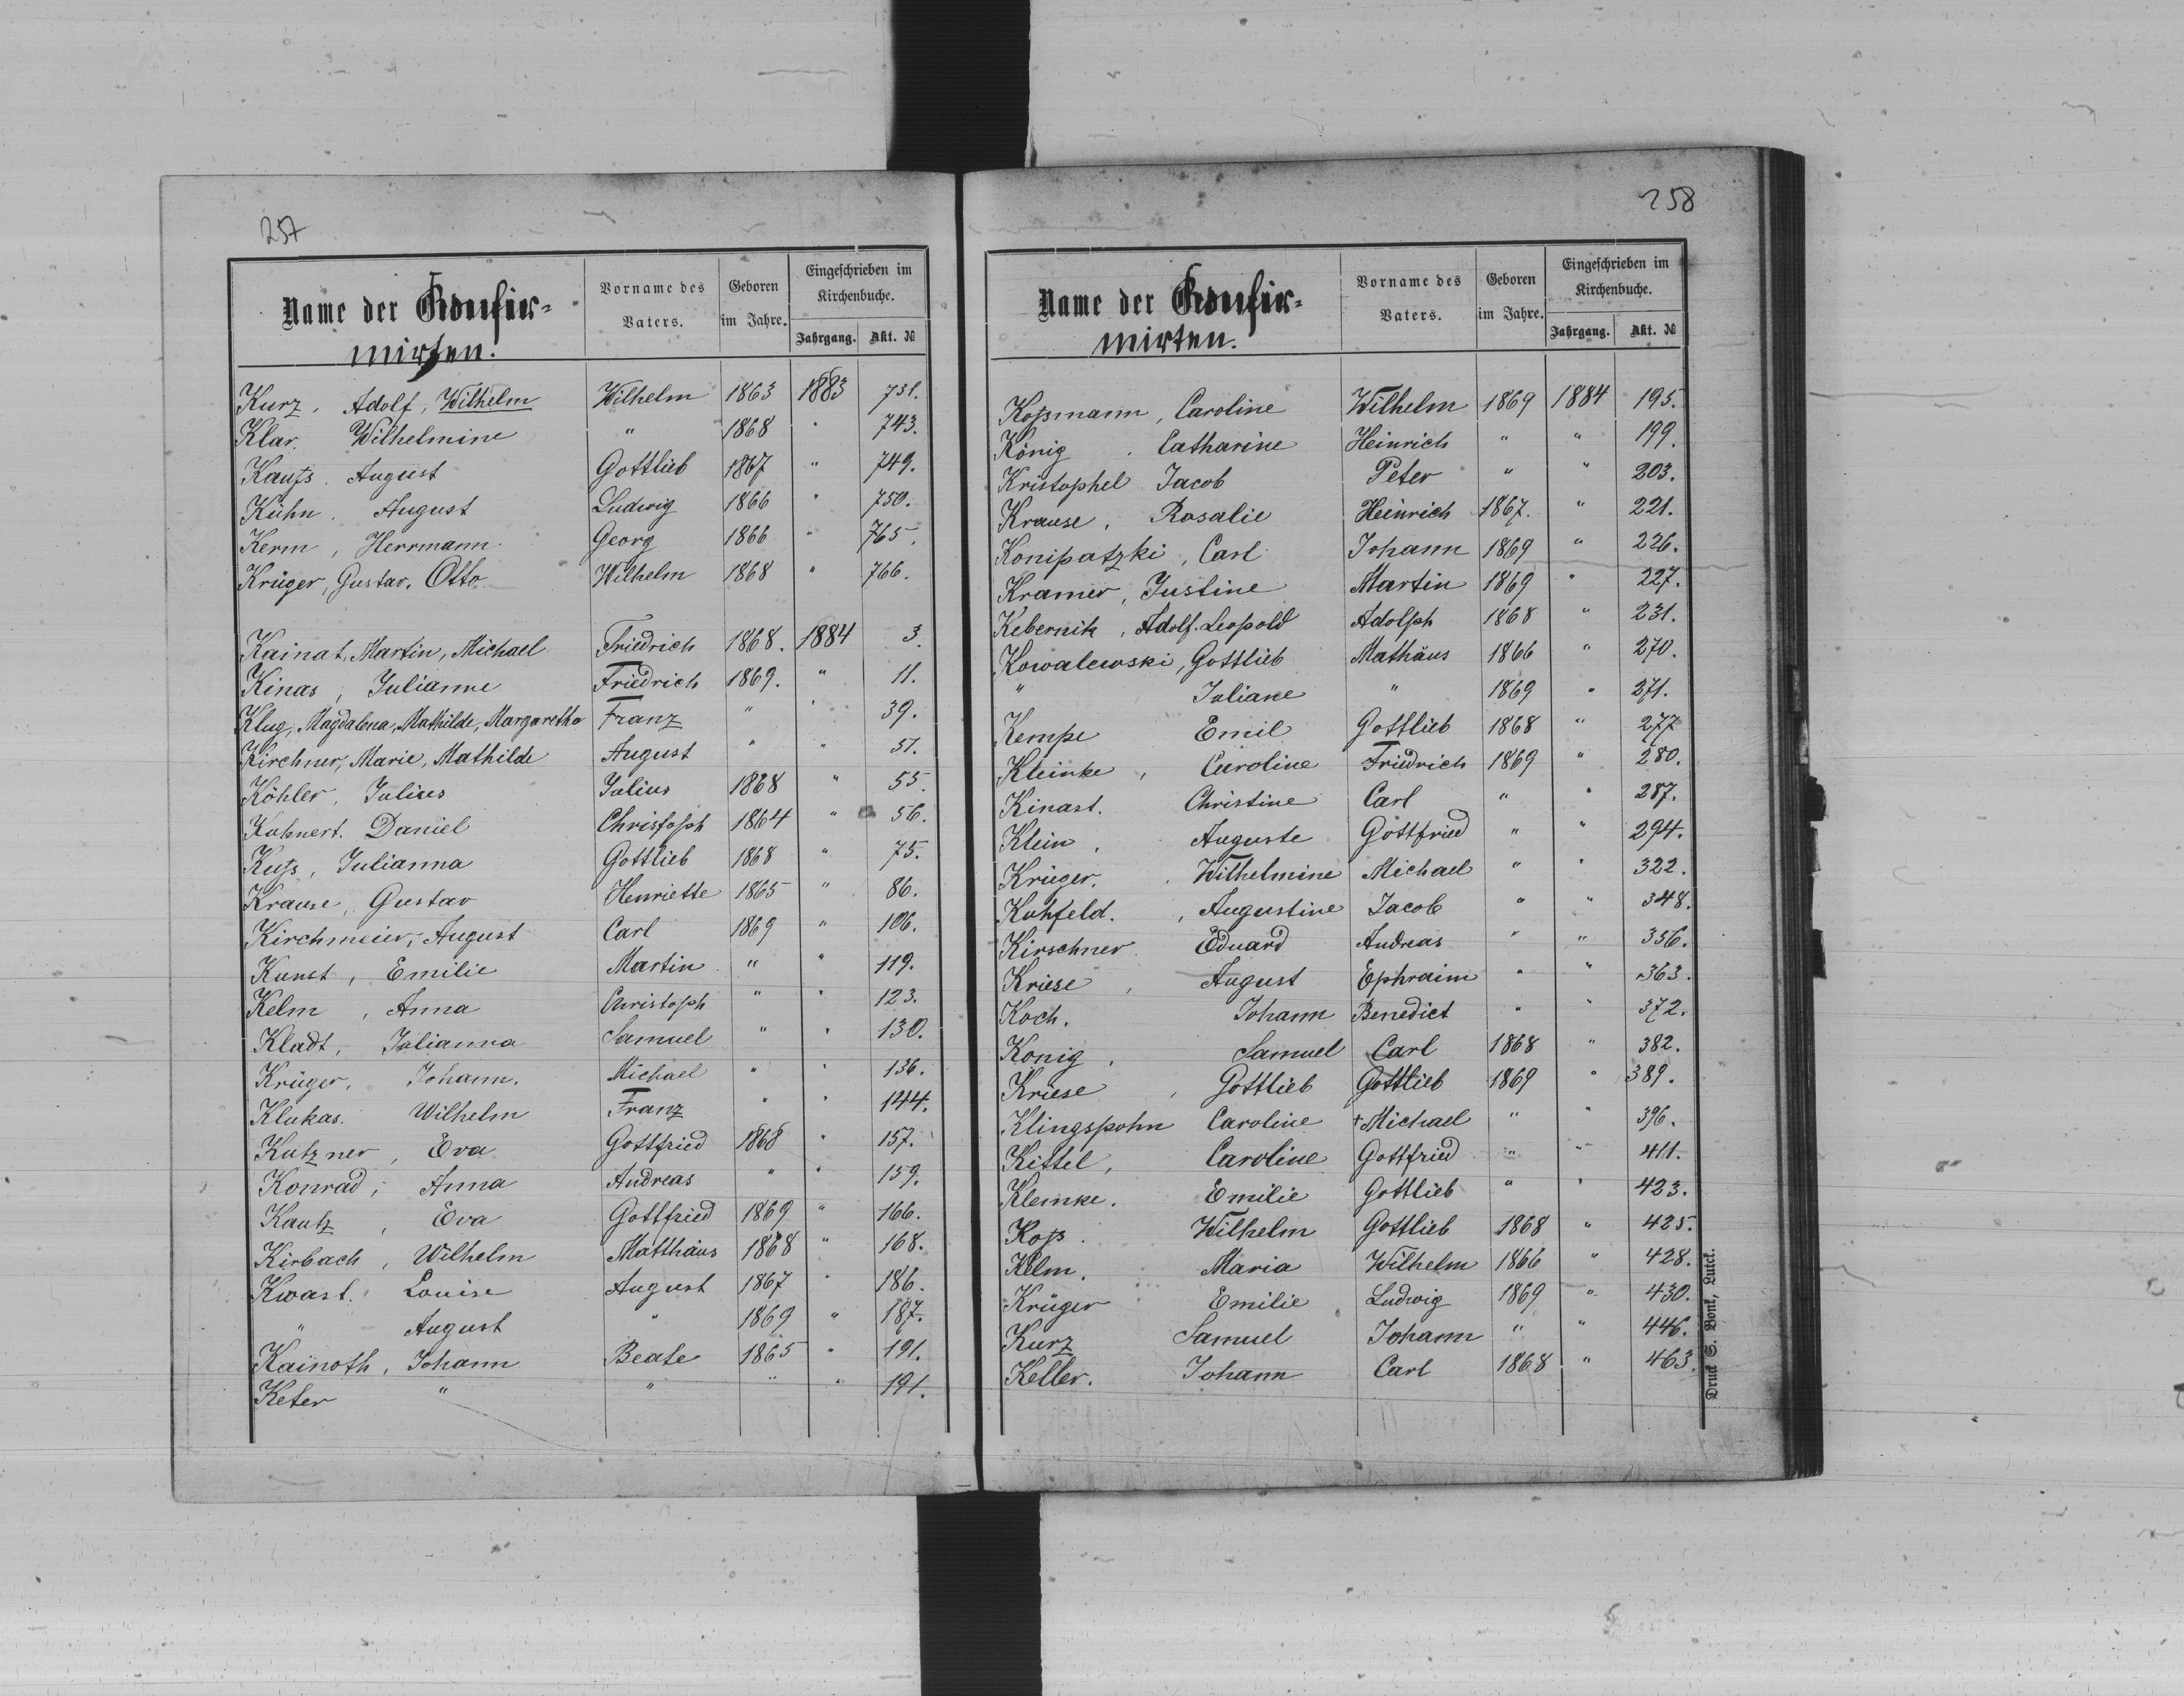 257
Name der Konfir-
mirten.
Vorname des Vaters.
Geboren im Jahre.
Eingeschrieben im Kirchenbuche.
Jahrgang. Akt. №
Kurz, Adolf, Wilhelm Wilhelm 1863 1883 731.
Klar, Wilhelmine " 1868 " 743.
Kautz, August Gottlieb 1867 " 749.
Kühn, August Ludwig 1866 " 750.
Kerm, Herrmann Georg 1866 " 765.
Krüger, Gustav, Otto Wilhelm 1868 " 766.
Kainat, Martin, Michael Friedrich 1868. 1884 3.
Kinas, Julianne Friedrich 1869. " 11.
Klug, Magdalena, Mathilde, Margaretha Franz " " 39.
Kirchner, Marie, Mathilde August " " 51.
Köhler, Julius Julius 1868 " 55.
Kuhnert. Daniel Christoph 1864 " 56.
Kutz, Julianna Gottlieb 1868 " 75.
Krause, Gustav Henriette 1865 " 86.
Kirchmeier, August Carl 1869 " 106.
Kunst, Emilie Martin " " 119.
Kelm, Anna Christoph " " 123.
Kladt, Julianna Samuel " " 130.
Krüger, Johann. Michael " " 136.
Klukas. Wilhelm Franz " " 144.
Kutzner, Eva Gottfried 1868 " 157.
Konrad, Anna Andreas " " 159.
Kautz, Eva Gottfried 1869 " 166.
Kirbach, Wilhelm Matthäus 1868 " 168.
Kwast. Louise August 1867 " 186.
" August " 1869 " 187.
Kainoth, Johann Beate 1865 " 191.
Keter " " " " 191.
258
Name der Konfir-
mirten.
Vorname des Vaters.
Geboren im Jahre.
Eingeschrieben im Kirchenbuche.
Jahrgang. Akt. №
Kossmann, Caroline Wilhelm 1869 1884 195.
König, Catharine Heinrich " " 199.
Kristophel Jacob Peter " " 203.
Krause, Rosalie Heinrich 1867. " 221.
Konipatzki, Carl Johann 1869 " 226.
Kramer, Justine Martin 1869 " 227.
Kebernik, Adolf. Leopold Adolph 1868 " 231.
Kowalewski, Gottlieb Mathäus 1866 " 270.
" Juliane " 1869 " 271.
Kempe Emil Gottlieb 1868 " 277
Kleinke, Caroline Friedrich 1869 " 280.
Kinast. Christine Carl " " 287.
Klein, Auguste Gottfried " " 294.
Krüger. Wilhelmine Michael " " 322.
Kuhfeld., Augustine Jacob " " 348.
Kirschner Eduard Andreas " " 356.
Kriese, August Ephraim " " 363.
Koch. Johann Benedict " " 372.
König, Samuel Carl 1868 " 382.
Kriese, Gottlieb Gottlieb 1869 " 389.
Klingspohn Caroline + Michael " " 396.
Kittel, Caroline Gottfried " " 411.
Klemke. Emilie Gottlieb " " 423.
Koss. Wilhelm Gottlieb 1868 " 425.
Kelm. Maria Wilhelm 1866 " 428.
Krüger Emilie Ludwig 1869 " 430.
Kurz Samuel Johann " " 446.
Keller. Johann Carl 1868 " 463.
Druck S. Bonk, Luck.